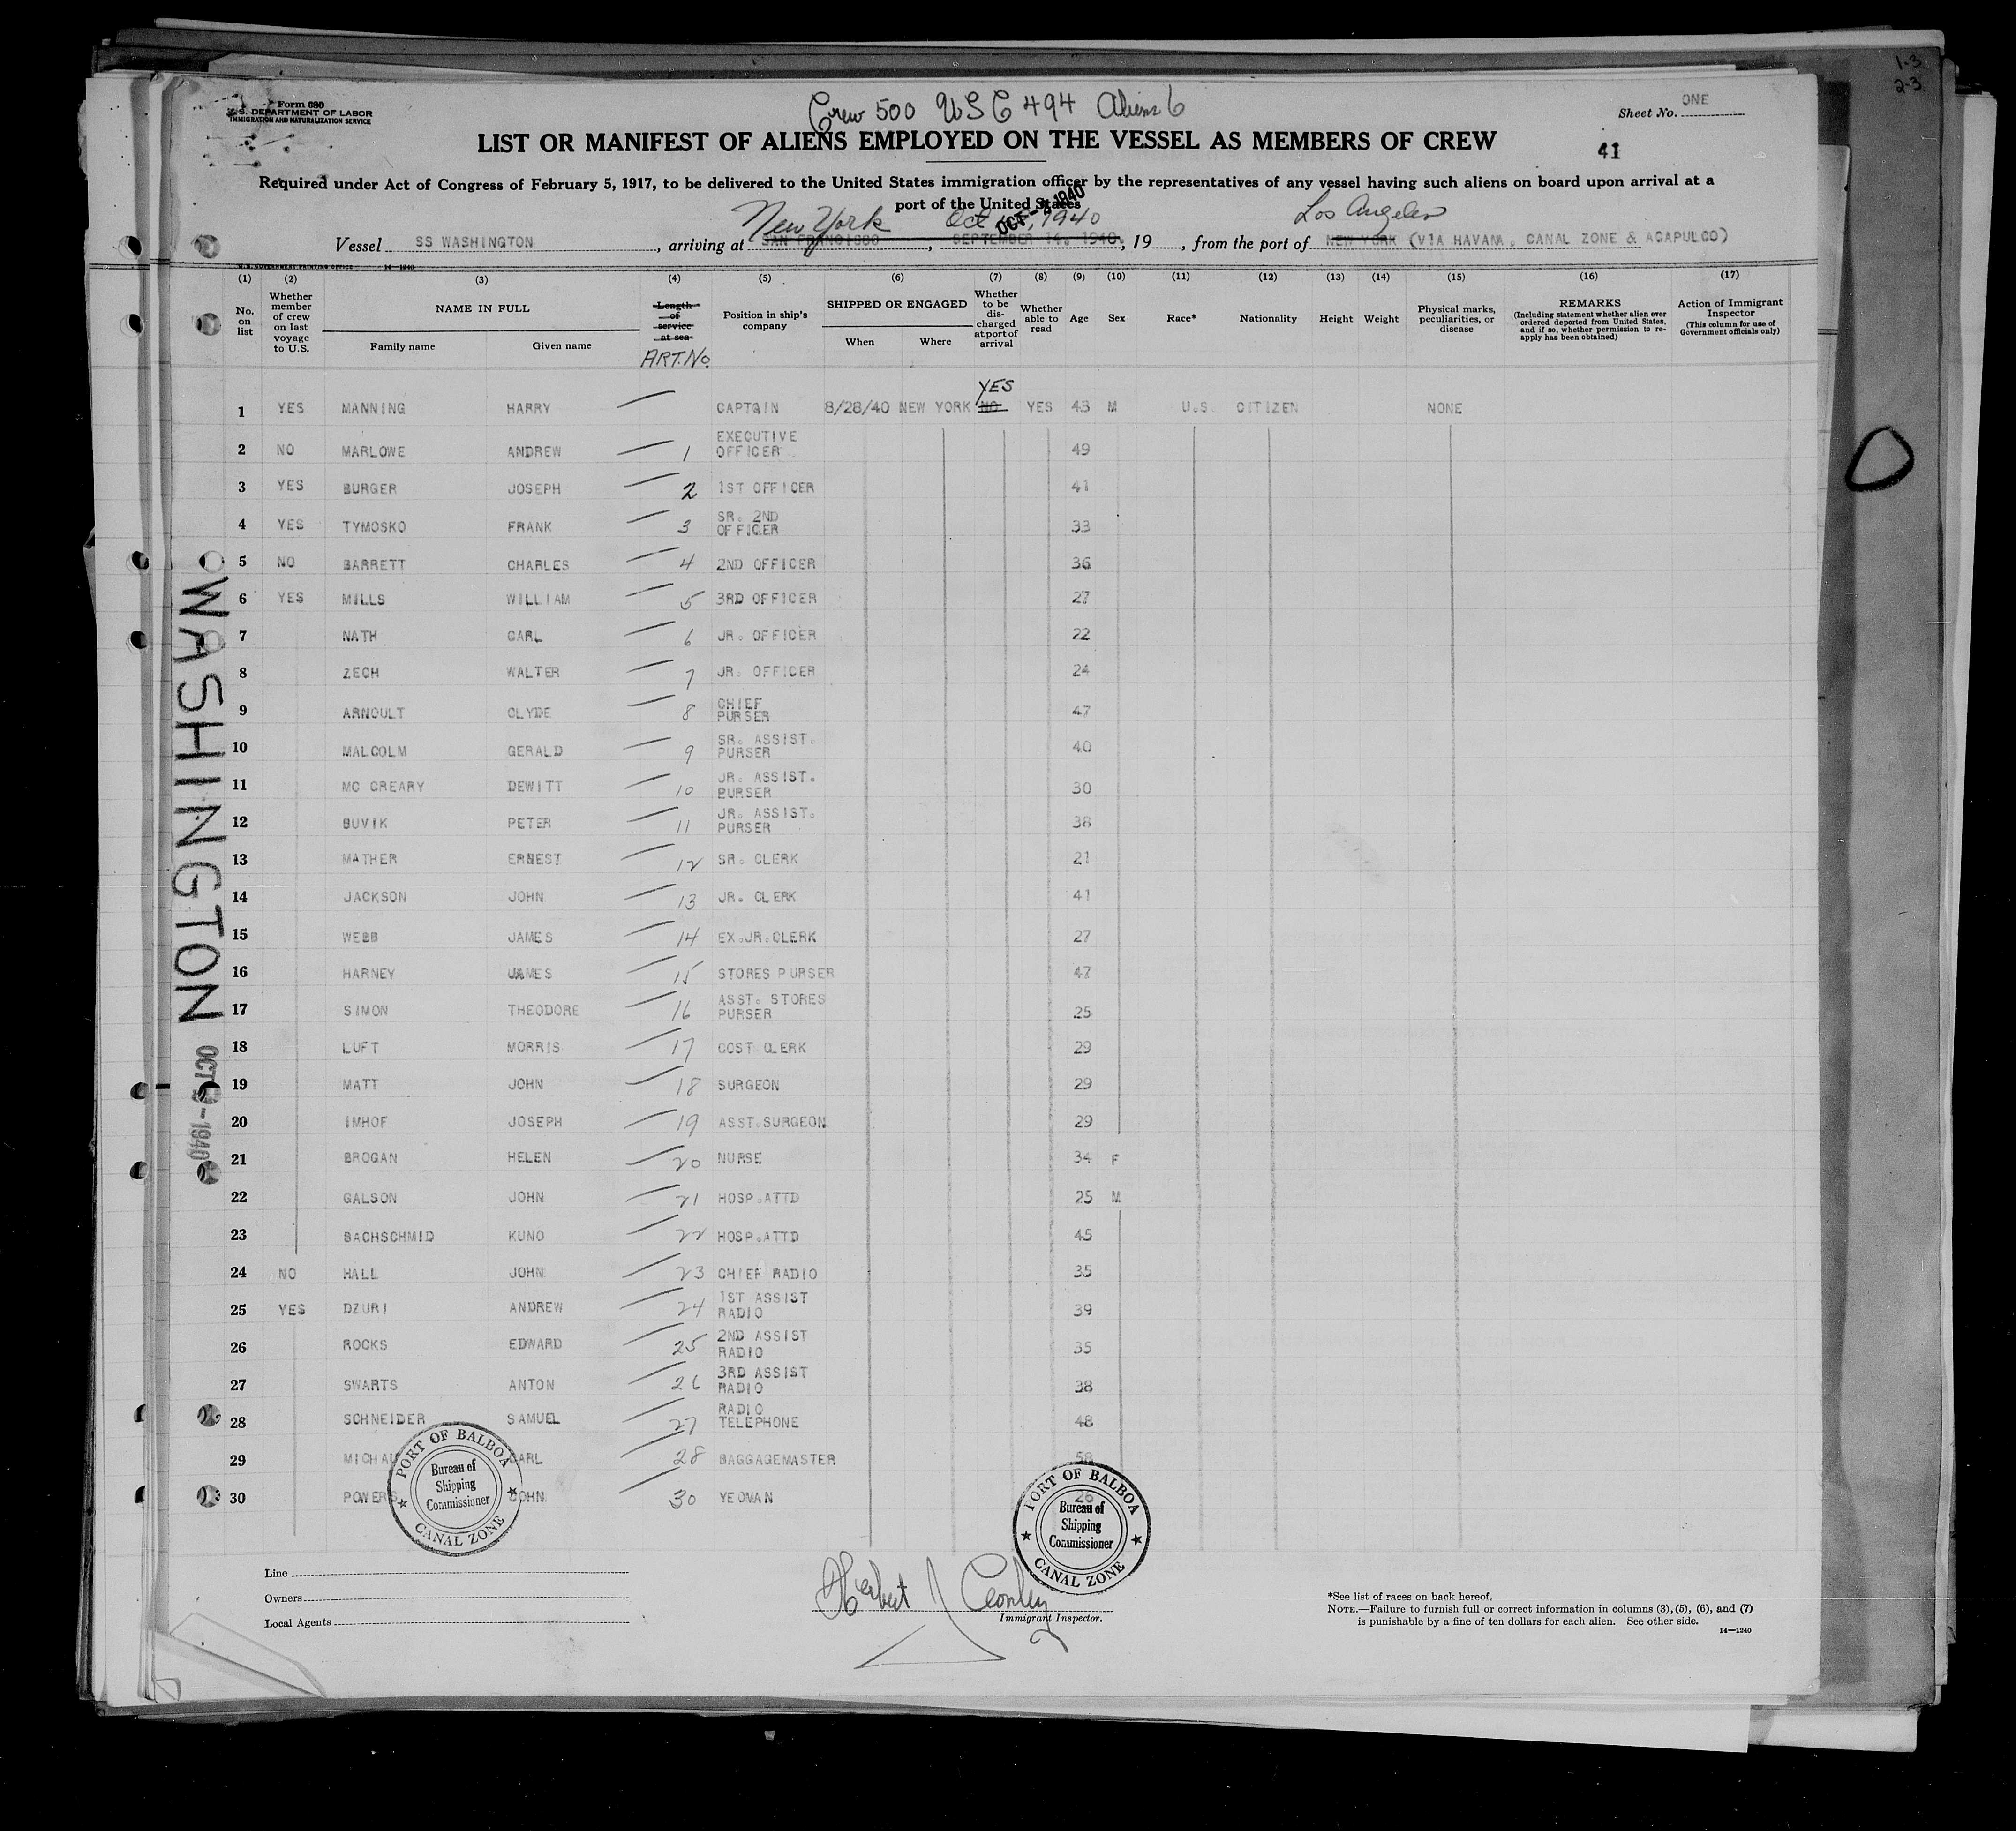 1-3
2-3
Form 680
U.S. DEPARTMENT OF LABOR
IMMIGRATION AND NATURALIZATION SERVICE
Crew 500 USC 494 Aliens 6
Sheet No. ONE
LIST OR MANIFEST OF ALIENS EMPLOYED ON THE VESSEL AS MEMBERS OF CREW
41
Required under Act of Congress of February 5, 1917, to be delivered to the United States immigration officer by the representatives of any vessel having such aliens on board upon arrival at a
port of the United States
New York Oct 1940 Los Angeles
Vessel SS WASHINGTON, arriving at SAN FRANCISCO, SEPTEMBER 14, 1940, 19, from the port of NEW YORK (VIA HAVANA, CANAL ZONE & ACAPULCO)
U.S. GOVERNMENT PRINTING OFFICE 14-1240
(1) (2) (3) (4) (5) (6) (7) (8) (9) (10) (11) (12) (13) (14) (15) (16) (17)
No. on list
Whether member of crew on last voyage to U.S.
NAME IN FULL
Family name Given name
Length of service at sea
ART.No.
Position in ship's company
SHIPPED OR ENGAGED
When Where
Whether to be discharged at port of arrival
Whether able to read
Age
Sex
Race*
Nationality
Height
Weight
Physical marks, peculiarities, or disease
REMARKS
(Including statement whether alien ever ordered deported from United States, and if so, whether permission to reapply has been obtained)
Action of Immigrant Inspector
(This column for use of Government officials only)
YES
1 YES MANNING HARRY CAPTQIN 8/28/40 NEW YORK NO YES 43 M U.S. CITIZEN NONE
2 NO MARLOWE ANDREW 1 EXECUTIVE OFFICER 49
3 YES BURGER JOSEPH 2 1ST OFFICER 41
4 YES TYMOSKO FRANK 3 SR. 2ND OFFICER 33
5 NO BARRETT CHARLES 4 2ND OFFICER 36
6 YES MILLS WILLIAM 5 3RD OFFICER 27
7 NATH CARL 6 JR. OFFICER 22
8 ZECH WALTER 7 JR. OFFICER 24
9 ARNOULT CLYDE 8 CHIEF PURSER 47
10 MALCOLM GERALD 9 SR. ASSIST. PURSER 40
11 MC CREARY DEWITT 10 JR. ASSIST. PURSER 30
12 BUVIK PETER 11 JR. ASSIST. PURSER 38
13 MATHER ERNEST 12 SR. CLERK 21
14 JACKSON JOHN 13 JR. CLERK 41
15 WEBB JAMES 14 EX.JR.CLERK 27
16 HARNEY JAMES 15 STORES PURSER 47
17 SIMON THEODORE 16 ASST. STORES PURSER 25
18 LUFT MORRIS 17 COST CLERK 29
19 MATT JOHN 18 SURGEON 29
20 IMHOF JOSEPH 19 ASST.SURGEON 29
21 BROGAN HELEN 20 NURSE 34 F
22 GALSON JOHN 21 HOSP.ATTD 25 M
23 BACHSCHMID KUNO 22 HOSP.ATTD 45
24 NO HALL JOHN 23 CHIEF RADIO 35
25 YES DZURI ANDREW 24 1ST ASSIST RADIO 39
26 ROCKS EDWARD 25 2ND ASSIST RADIO 35
27 SWARTS ANTON 26 3RD ASSIST RADIO 38
28 SCHNEIDER SAMUEL 27 RADIO TELEPHONE 48
29 CARL 28 BAGGAGEMASTER
30 POWERS 30 YEOMAN 26
WASHINGTON
PORT OF BALBOA
Bureau of
Shipping
Commissioner
CANAL ZONE
PORT OF BALBOA
Bureau of
Shipping
Commissioner
CANAL ZONE
Line
Owners
Local Agents
Herbert J
Immigrant Inspector.
*See list of races on back hereof.
NOTE.—Failure to furnish full or correct information in columns (3), (5), (6), and (7)
is punishable by a fine of ten dollars for each alien. See other side.
14—1240